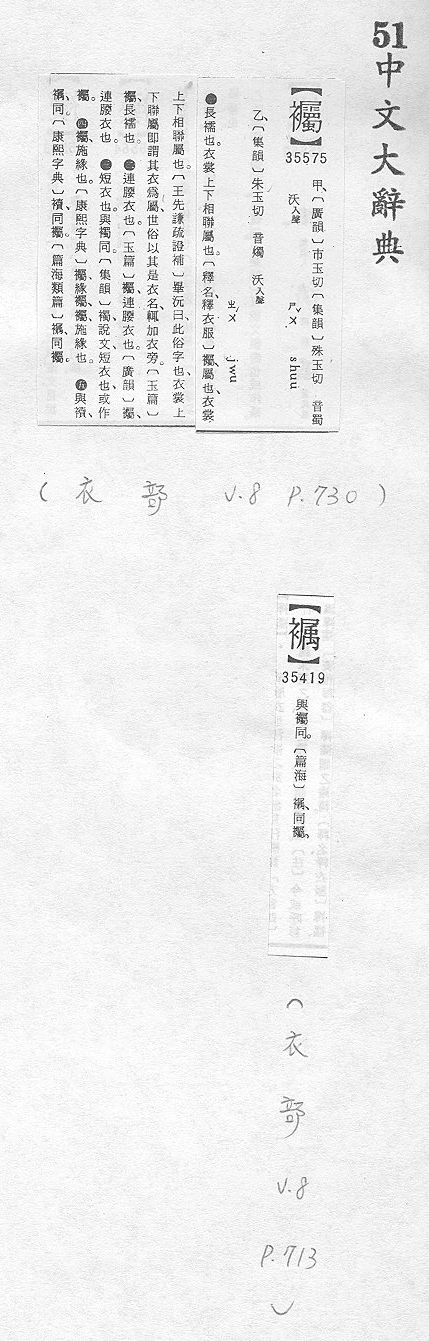 51中文大辭典
【襡】
35575
甲、〔廣韻〕市玉切〔集韻〕殊玉切 音蜀
沃入聲 ㄕㄨˇ shuu
乙、〔集韻〕朱玉切 音燭 沃入聲
ㄓㄨˇ jwu
㊀長襦也。衣裳上下相聯屬也。〔釋名、釋衣服〕襡、屬也、衣裳
上下相聯屬也。〔王先謙疏證補〕畢沅曰、此俗字也、衣裳上
下聯屬、卽謂其衣爲屬、世俗以其是衣名、輒加衣旁。〔玉篇〕
襡、長襦也。㊁連腰衣也。〔玉篇〕襡、連腰衣也。〔廣韻〕襡、
連腰衣也。㊂短衣也。與襡同。〔集韻〕襡、說文、短衣也、或作
襡。㊃襡、施緣也。〔康熙字典〕襡、緣襡、襡、施緣也。㊄與襩、
襹同。〔康熙字典〕襩、同襡。〔篇海類篇〕襹、同襡。
(衣部 V.8 P.730)
【𧝎】
35419
與襡同。〔篇海〕𧝎、同襡。
(衣部 V.8 P.713)